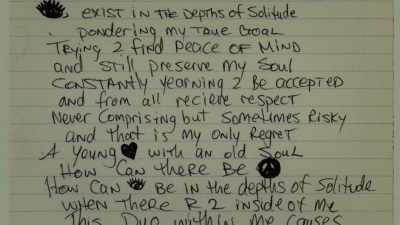 exist in the depths of Solitude
pondering my True Goal
Trying 2 find Peace of Mind
and still preserve my Soul
Constantly yearning 2 be accepted
and from all reciere respect
Never Comprising but sometimes Risky
and that is my only Regret
A Young with an old Soul
How Can there Be
How Can Be in the depths of Solitude
when there R 2 inside of me
This Duo within me causes